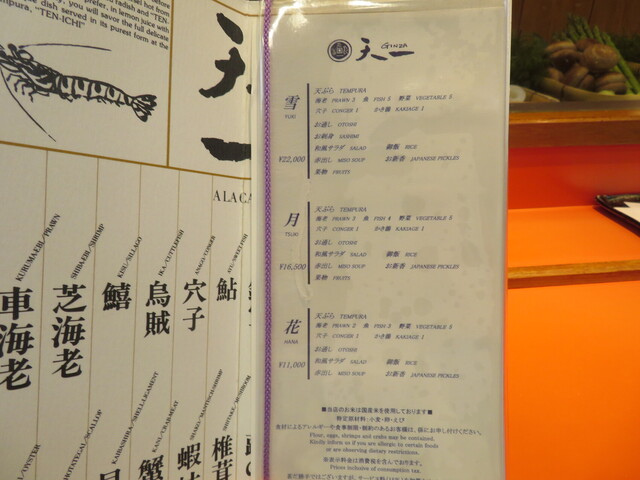 radish and "TEN-
prefer, in lemon juice with
you will savor the full delicate
dish served in its purest form at the
mpura, "TEN-ICHI"
天一
A LA CA
KURUMA EBI/PRAWN
車海老
SHIBA EBI/SHRIMP
芝海老
KISU/SILLAGO
鱚
IKA/CUTTLEFISH
烏賊
ANAGO/CONGER
穴子
鮎
蟹
椎茸
天一
GINZA
雪
YUKI
¥22,000
天ぷら TEMPURA
海老 PRAWN 3 魚 FISH 5 野菜 VEGETABLE 5
穴子 CONGER 1 かき揚 KAKIAGE 1
お通し OTOSHI
お刺身 SASHIMI
和風サラダ SALAD 御飯 RICE
赤出し MISO SOUP お新香 JAPANESE PICKLES
果物 FRUITS
月
TSUKI
¥16,500
天ぷら TEMPURA
海老 PRAWN 3 魚 FISH 4 野菜 VEGETABLE 5
穴子 CONGER 1 かき揚 KAKIAGE 1
お通し OTOSHI
和風サラダ SALAD 御飯 RICE
赤出し MISO SOUP お新香 JAPANESE PICKLES
果物 FRUITS
花
HANA
¥11,000
天ぷら TEMPURA
海老 PRAWN 2 魚 FISH 3 野菜 VEGETABLE 3
穴子 CONGER 1 かき揚 KAKIAGE 1
お通し OTOSHI
和風サラダ SALAD 御飯 RICE
赤出し MISO SOUP お新香 JAPANESE PICKLES
■当店のお米は国産米を使用しております■
特定原材料：小麦・卵・えび
食材によるアレルギーや食事制限・制約のあるお客様は、係にお申し付けください。
Flour, eggs, shrimps and crabs may be contained.
Kindly inform us if you are allergic to certain foods
or are observing dietary restrictions.
※表示料金は消費税を含んでおります。
Prices inclusive of consumption tax.